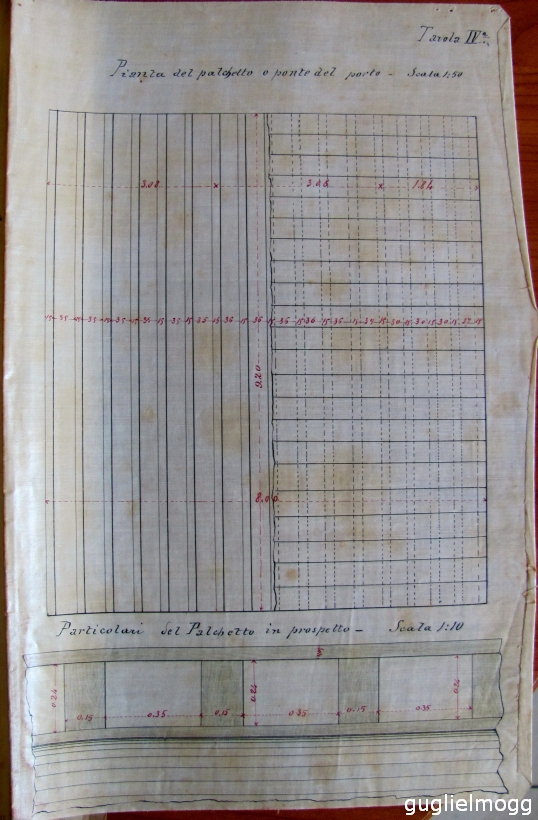 Tavola IVª
Pianta del palchetto o ponte del porto - Scala 1:50
3.08 3.08 1.84
15 35 15 35 15 35 15 36 15 35 15 36 15 36 15 36 15 36 15 36 15 36 15 35 15 30 15 30 15 30 15 32 15
9.20
8.00
Particolari del Palchetto in prospetto - Scala 1:10
5
0.24 0.24 0.24
0.15 0.35 0.15 0.35 0.15 0.35
guglielmogg